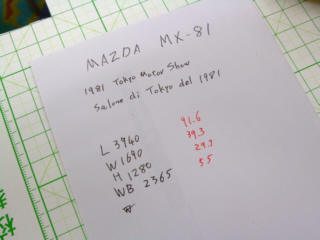 MAZDA MX-81
1981 Tokyo Motor Show
Salone di Tokyo del 1981
L 3940
W 1690
H 1280
WB 2365
91.6
39.3
29.7
55